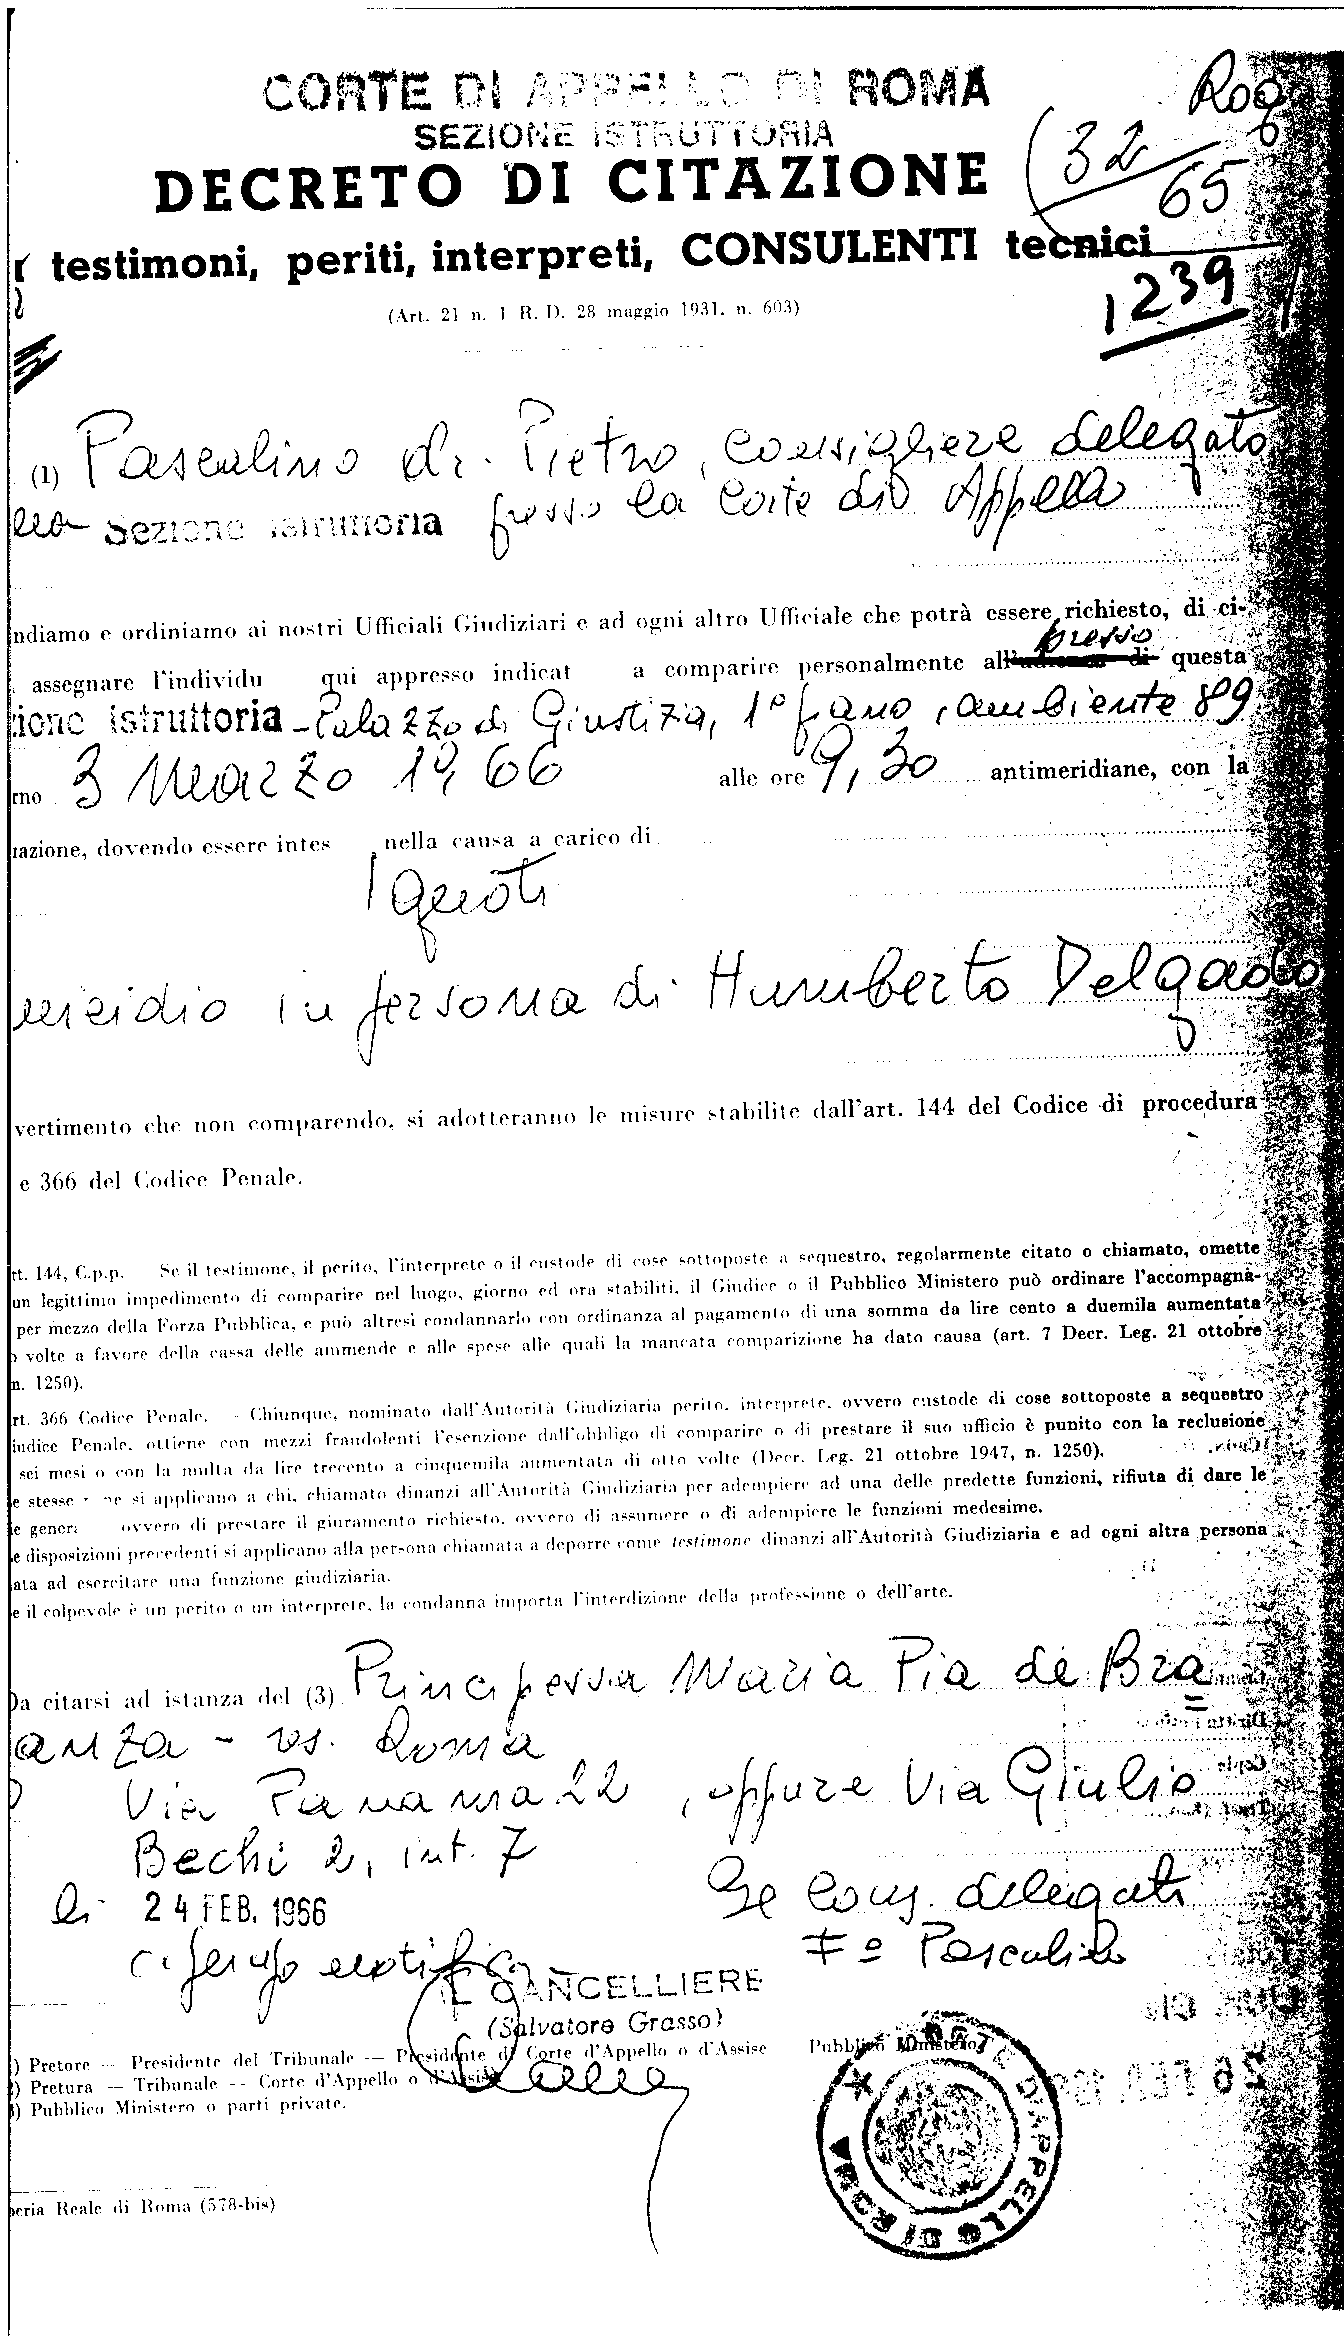 CORTE DI APPELLO DI ROMA
SEZIONE ISTRUTTORIA
DECRETO DI CITAZIONE
r testimoni, periti, interpreti, CONSULENTI tecnici
Rog
32/65
1239
(Art. 21 n. 1 R. D. 28 maggio 1931. n. 603)
(1) Pascalino dr. Pietro, Consigliere delegato
Sezione Istruttoria presso la Corte di Appello
ndiamo e ordiniamo ai nostri Ufficiali Giudiziari e ad ogni altro Ufficiale che potrà essere richiesto, di ci-
presso
assegnare l'individu qui appresso indicat a comparire personalmente all'udienza di questa
zione Istruttoria - Palazzo di Giustizia, 1° piano, ambiente 89
rno 3 Marzo 1966 alle ore 9,30 antimeridiane, con la
nazione, dovendo essere intes nella causa a carico di
Ignoti
micidio in persona di Humberto Delgado
vertimento che non comparendo, si adotteranno le misure stabilite dall'art. 144 del Codice di procedura
e 366 del Codice Penale.
rt. 144, C.p.p. Se il testimone, il perito, l'interprete o il custode di cose sottoposte a sequestro, regolarmente citato o chiamato, omette
un legittimo impedimento di comparire nel luogo, giorno ed ora stabiliti, il Giudice o il Pubblico Ministero può ordinare l'accompagna-
per mezzo della Forza Pubblica, e può altresì condannarlo con ordinanza al pagamento di una somma da lire cento a duemila aumentata
o volte a favore della cassa delle ammende e alle spese alle quali la mancata comparizione ha dato causa (art. 7 Decr. Leg. 21 ottobre
n. 1250).
rt. 366 Codice Penale. - Chiunque, nominato dall'Autorità Giudiziaria perito, interprete, ovvero custode di cose sottoposte a sequestro
iudice Penale, ottiene con mezzi fraudolenti l'esenzione dall'obbligo di comparire o di prestare il suo ufficio è punito con la reclusione
sei mesi o con la multa da lire trecento a cinquemila aumentata di otto volte (Decr. Leg. 21 ottobre 1947, n. 1250).
e stesse ne si applicano a chi, chiamato dinanzi all'Autorità Giudiziaria per adempiere ad una delle predette funzioni, rifiuta di dare le
e genera ovvero di prestare il giuramento richiesto, ovvero di assumere o di adempiere le funzioni medesime.
e disposizioni precedenti si applicano alla persona chiamata a deporre come testimone dinanzi all'Autorità Giudiziaria e ad ogni altra persona
ata ad esercitare una funzione giudiziaria.
e il colpevole è un perito o un interprete, la condanna importa l'interdizione della professione o dell'arte.
Da citarsi ad istanza del (3) Principessa Maria Pia de Bra
anza - vs. Roma
Via Panama 22, oppure Via Giulio
Bechi 2, int. 7
lì 24 FEB. 1966
Il Cons. delegato
Fº Pascalino
IL CANCELLIERE
(Salvatore Grasso)
) Pretore — Presidente del Tribunale — Presidente di Corte d'Appello o d'Assise Pubblico Ministero
) Pretura — Tribunale — Corte d'Appello o d'Assise
) Pubblico Ministero o parti private.
CORTE D'APPELLO DI ROMA
peria Reale di Roma (578-bis)